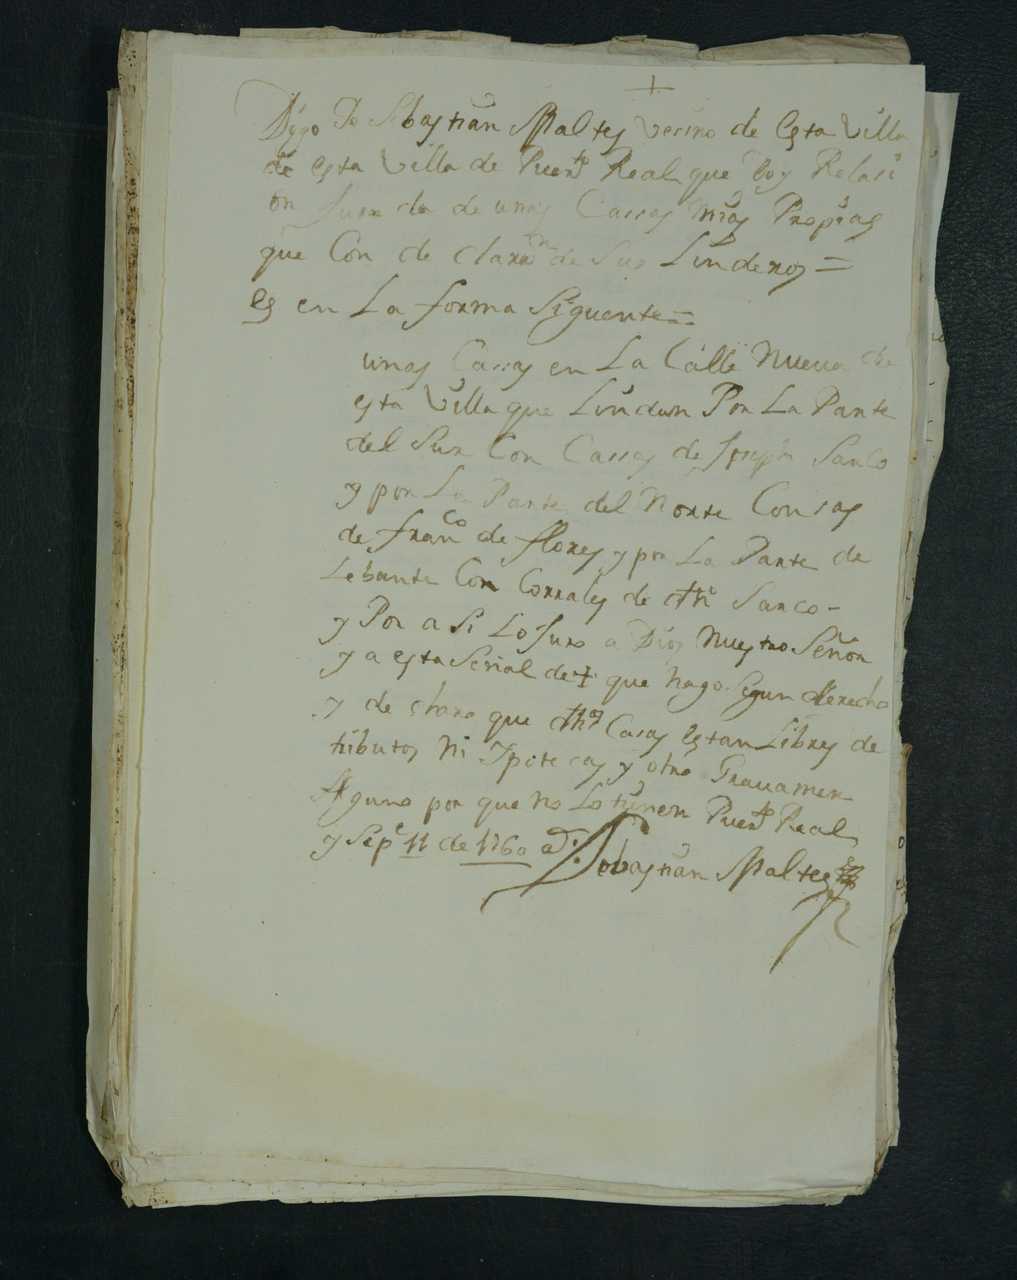 +
Dygo Io Sbastian Maltes Vecino de esta Villa
de esta Villa de Puerto Real que doy Relasi
on Jurada de unas Cassas mias Propias
que Con declarron de Sus Linderos =
es en La forma Siguente =
unas Cassas en La Calle Nueva de
esta Villa que Lindan Por La Parte
del Sur Con Cassas de Joseph Sanco
y por La Parte del Norte Con cas
de Franco de flores y por La Parte de
Lebante Con Corrales de dho Sanco -
y Por a Si Lo Juro a Dios Nuestro Señor
y a esta Señal de + que hago Segun derecho
y declaro que dhas Casas estan Libres de
tributos Ni Ipotecas y otro Gravamen
Alguno por que no Lo tienen Puerto Real
y Sepe 11 de 1760 as
Sebastian Maltes